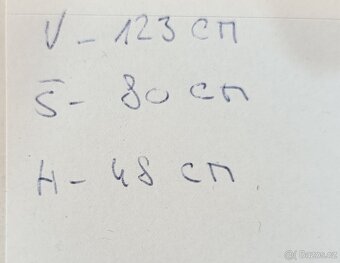 V - 123 cm
Š - 80 cm
H - 48 cm
Bazos.cz